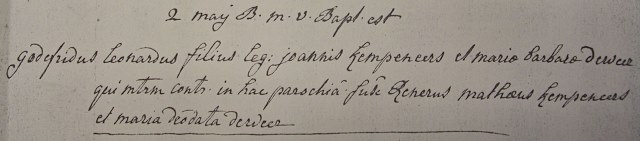 2 maÿ B. m. v. Bapt. est
godefridus leonardus filius leg: joannis kempeneers et mariæ barbaræ derwee
qui mtrm contr. in hac parochiâ. fusc. Renerus mathæus kempeneers
et maria deodata derwee